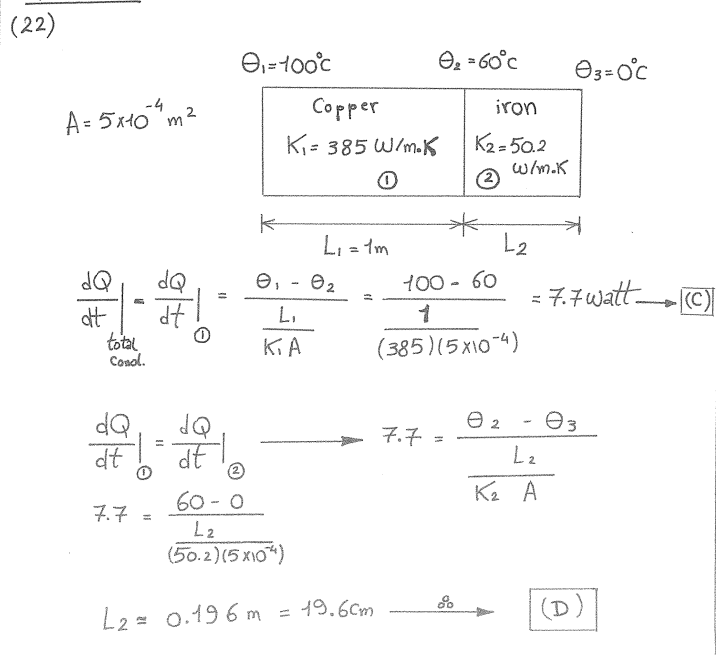 (22)
θ₁=100°C θ₂=60°C θ₃=0°C
A = 5×10⁻⁴ m²
Copper iron
K₁ = 385 W/m.K K₂=50.2
W/m.K
① ②
L₁ = 1m L₂
dQ/dt |total Cond. = dQ/dt |① = (θ₁ - θ₂)/(L₁/(K₁A)) = (100 - 60)/(1/((385)(5×10⁻⁴))) = 7.7 watt → (C)
dQ/dt |① = dQ/dt |② → 7.7 = (θ₂ - θ₃)/(L₂/(K₂ A))
7.7 = (60 - 0)/(L₂/((50.2)(5×10⁻⁴)))
L₂ ≈ 0.196 m = 19.6cm → (D)